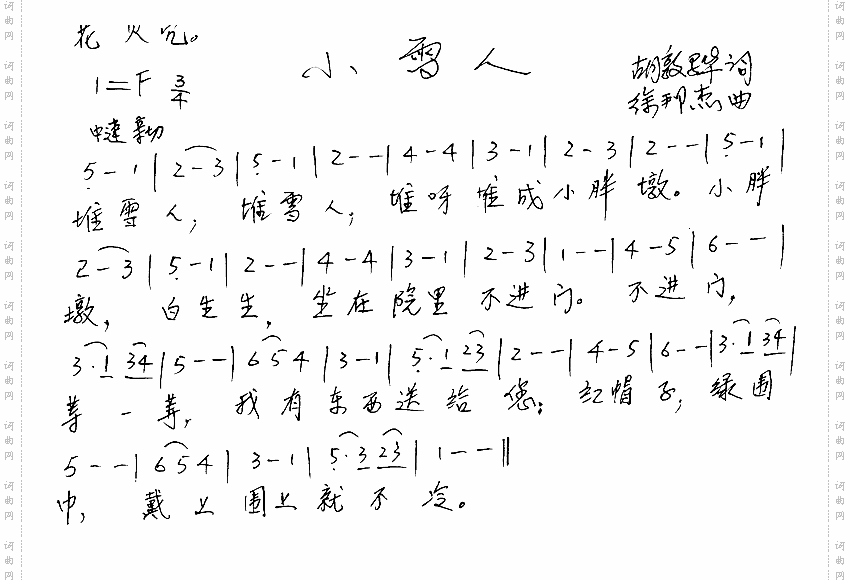 花火
小雪人
1=F 3/4
胡敦骅词
徐邦杰曲
中速
5 - 1 | 2 - 3 | 5 - 1 | 2 - - | 4 - 4 | 3 - 1 | 2 - 3 | 2 - - | 5 - 1 |
堆雪人，堆雪人，堆呀堆成小胖墩。小胖
2 - 3 | 5 - 1 | 2 - - | 4 - 4 | 3 - 1 | 2 - 3 | 1 - - | 4 - 5 | 6 - - |
墩，白生生，坐在院里不进门。不进门，
3 · 1 3 4 | 5 - - | 6 5 4 | 3 - 1 | 5 · 1 2 3 | 2 - - | 4 - 5 | 6 - - | 3 · 1 3 4 |
等一等，我有东西送给您；红帽子，绿围
5 - - | 6 5 4 | 3 - 1 | 5 · 3 2 3 | 1 - - ‖
巾，戴上围上就不冷。
词曲网